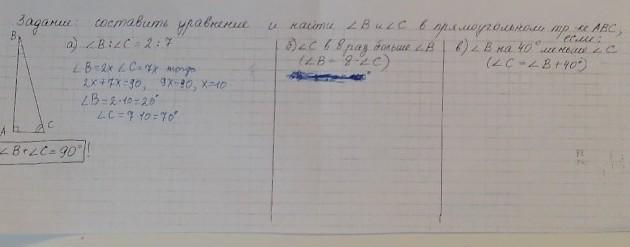 Задание: составить уравнение и найти ∠B и ∠C в прямоугольном тр-ке ABC,
если:
B
A
C
∠B+∠C=90° !
а) ∠B:∠C=2:7
∠B=2x ∠C=7x тогда
2x+7x=90, 9x=90, x=10
∠B=2·10=20°
∠C=7·10=70°
б) ∠C в 8 раз больше ∠B
(∠B = 8·∠C)
в) ∠B на 40° меньше ∠C
(∠C=∠B+40°)